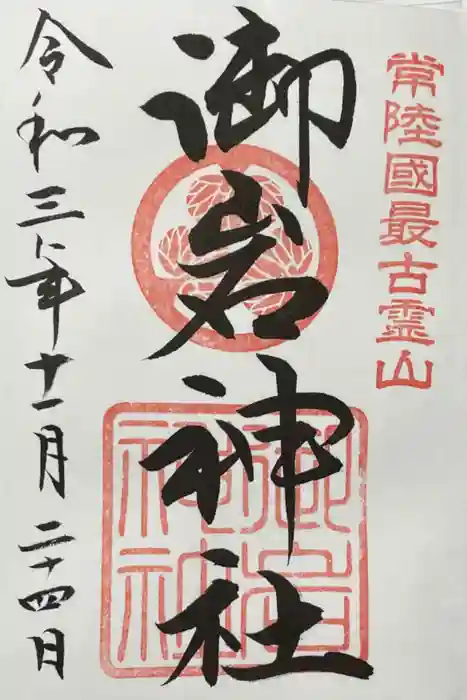 常陸國最古霊山
御岩神社
御岩神社
令和三年十一月二十四日